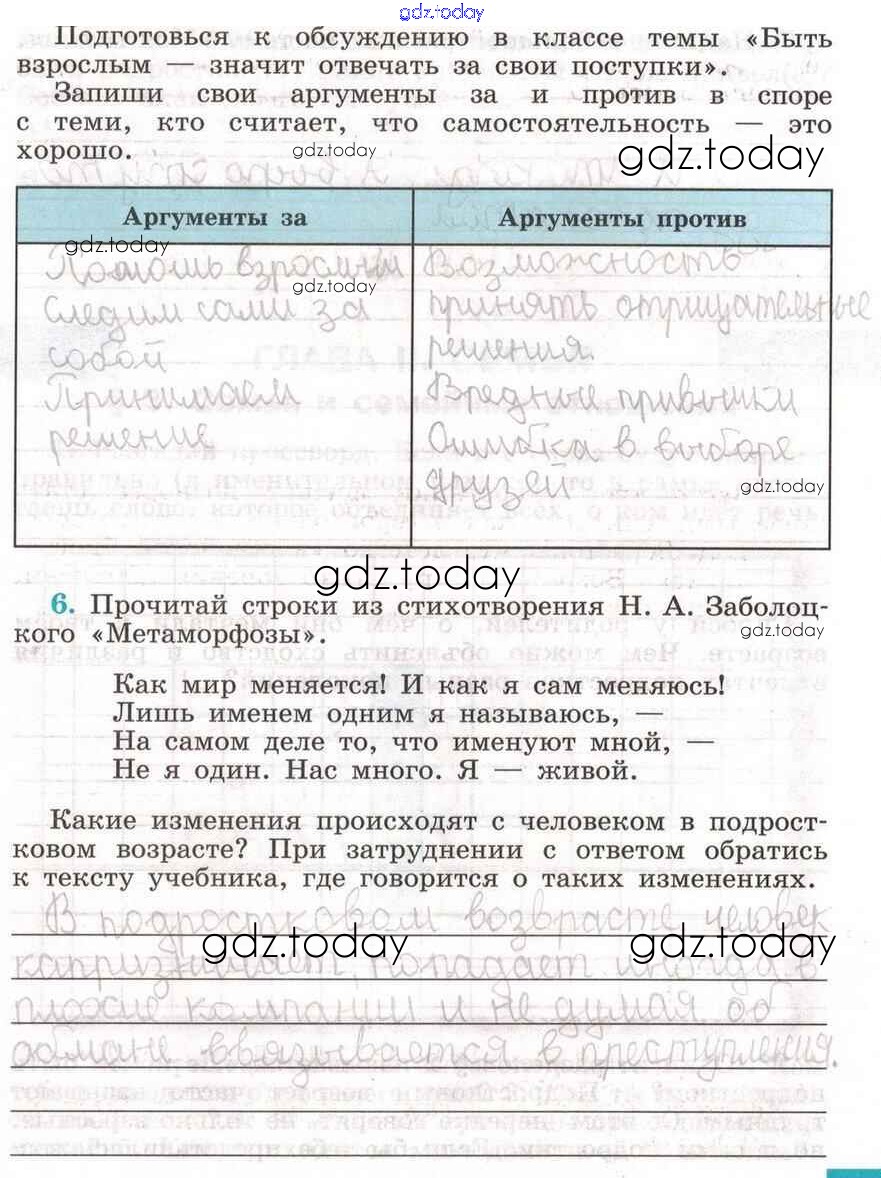 gdz.today
Подготовься к обсуждению в классе темы «Быть
взрослым — значит отвечать за свои поступки».
Запиши свои аргументы за и против в споре
с теми, кто считает, что самостоятельность — это
хорошо. gdz.today gdz.today
Аргументы за Аргументы против
gdz.today
Помошь взрослым Возможность
gdz.today
следим сами за принять отрицательные
собой решения.
Принимаем Вредные привычки
решение Ошибка в выборе
друзей gdz.today
gdz.today
6. Прочитай строки из стихотворения Н. А. Заболоц-
кого «Метаморфозы». gdz.today
Как мир меняется! И как я сам меняюсь!
Лишь именем одним я называюсь, —
На самом деле то, что именуют мной, —
Не я один. Нас много. Я — живой.
Какие изменения происходят с человеком в подрост-
ковом возрасте? При затруднении с ответом обратись
к тексту учебника, где говорится о таких изменениях.
В подростковом возврасте человек
gdz.today gdz.today
капризничает, попадает иногда в
плохие компании и не думая об
обмане ввязывается в преступления.